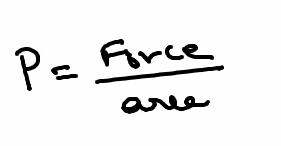 P = Force / area